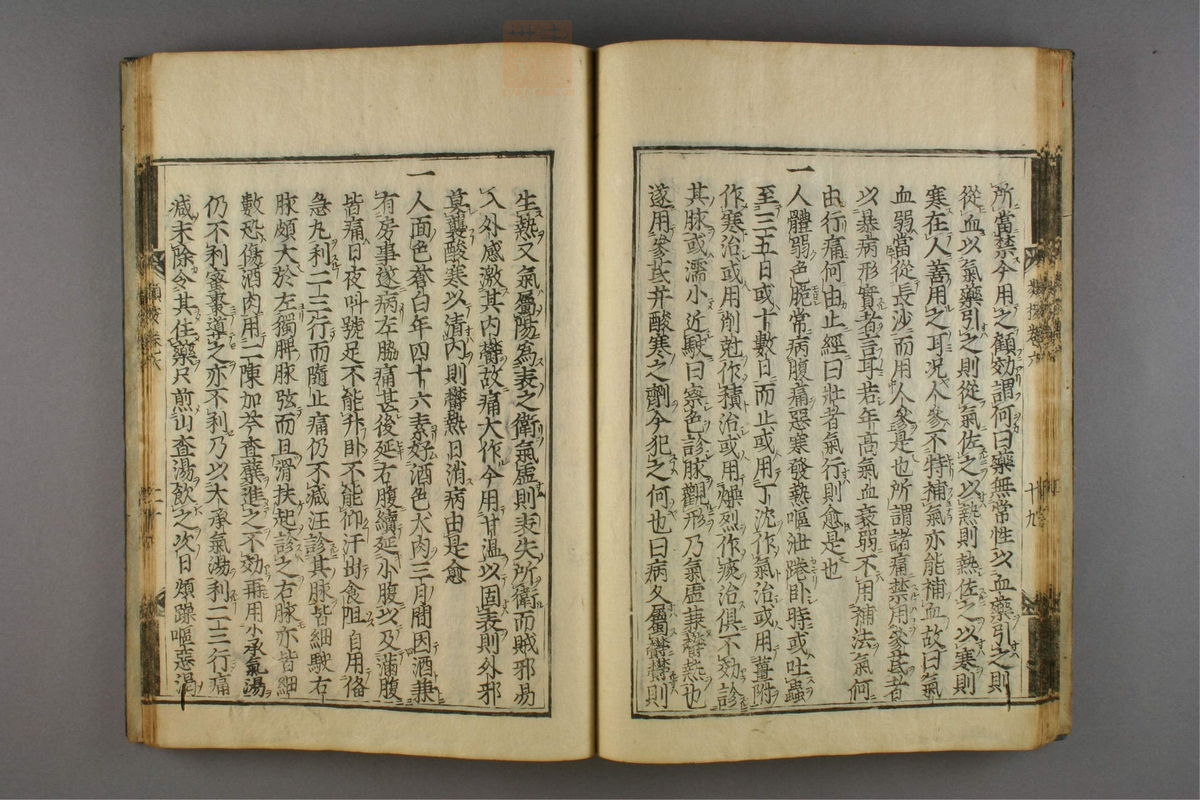 所當禁今用之顧効謂何曰藥無常性以血藥引之則
從血以氣藥引之則從氣佐之以熱則熱佐之以寒則
寒在人善用之耳况人參不特補氣亦能補血故曰氣
血弱當從長沙而用人參是也所謂諸痛禁用參芪者
以暴病形實者言耳若年高氣血衰弱不用補法氣何
由行痛何由止經曰壯者氣行則愈是也
一
人體弱色脆常病腹痛惡寒發熱嘔泄踡卧時或吐蟲
至三五日或十數日而止或用丁沈作氣治或用薑附
作寒治或用削尅作積治或用燥烈作痰治俱不効診
其脉或濡小近駃曰察色診脉觀形乃氣虛兼鬱熱也
遂用參芪并酸寒之劑今犯之何也曰病久屬鬱鬱則
生熱又氣屬陽爲表之衛氣虛則表失所衛而賊邪易
入外感激其内鬱故痛大作今用甘温以固表則外邪
莫襲酸寒以清内則鬱熱日消病由是愈
一
人面色蒼白年四十六素好酒色犬肉三月間因酒兼
有房事遂病左脇痛甚後延右腹續延小腹以及滿腹
皆痛日夜叫號足不能升卧不能仰汗出食阻自用俻
急丸利二三行而隨止痛仍不减汪診其脉皆細駛右
脉頗大於左獨脾脉弦而且滑扶起診之右脉亦皆細
數恐傷酒肉用二陳加芩查蘖進之不効再用小承氣湯
仍不利蜜棗導之亦不利乃以大承氣湯利二三行痛
减未除令其住藥只煎山查湯飲之次日頗躁嘔惡渴
十九